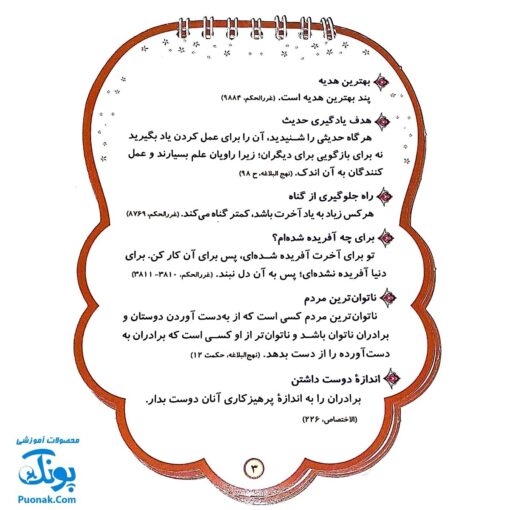 بهترین هدیه
پند بهترین هدیه است. (غررالحکم، ۹۸۸۴)
هدف یادگیری حدیث
هرگاه حدیثی را شنیدید، آن را برای عمل کردن یاد بگیرید
نه برای بازگویی برای دیگران؛ زیرا راویان علم بسیارند و عمل
کنندگان به آن اندک. (نهج البلاغه، ح ۹۸)
راه جلوگیری از گناه
هرکس زیاد به یاد آخرت باشد، کمتر گناه می‌کند. (غررالحکم، ۸۷۶۹)
برای چه آفریده شده‌ام؟
تو برای آخرت آفریده شده‌ای، پس برای آن کار کن. برای
دنیا آفریده نشده‌ای؛ پس به آن دل نبند. (غررالحکم، ۳۸۱۰- ۳۸۱۱)
ناتوان‌ترین مردم
ناتوان‌ترین مردم کسی است که از به‌دست آوردن دوستان و
برادران ناتوان باشد و ناتوان‌تر از او کسی است که برادران به
دست‌آورده را از دست بدهد. (نهج‌البلاغه، حکمت ۱۲)
اندازهٔ دوست داشتن
برادران را به اندازهٔ پرهیزکاری آنان دوست بدار.
(الاختصاص، ۲۲۶)
۳
محصولات آموزشی
پونک
Puonak.Com